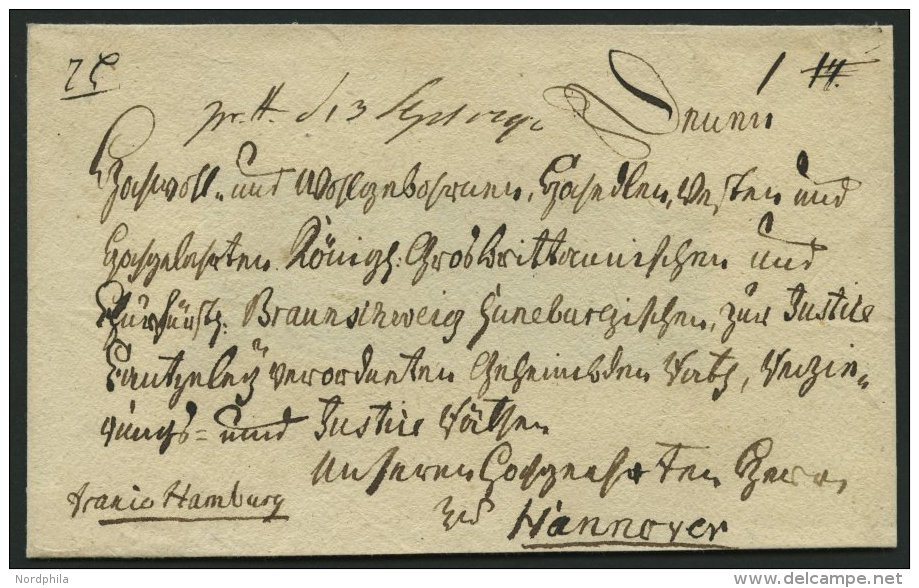 Denen
Hochwoll- und Wollgebohrnen, Hochedlen, Vesten und
Hochgelahrten Königl: Grosbrittannischen und
Churfürstl: Braunschweig Lüneburgischen, zur Justice
Cantzeley verordneten Geheimbden Rath,
und Justice Räthen
Unseren Hochgeehrten Herrn
zu Hannover
franco Hamburg
Nordphila
delcampe.net